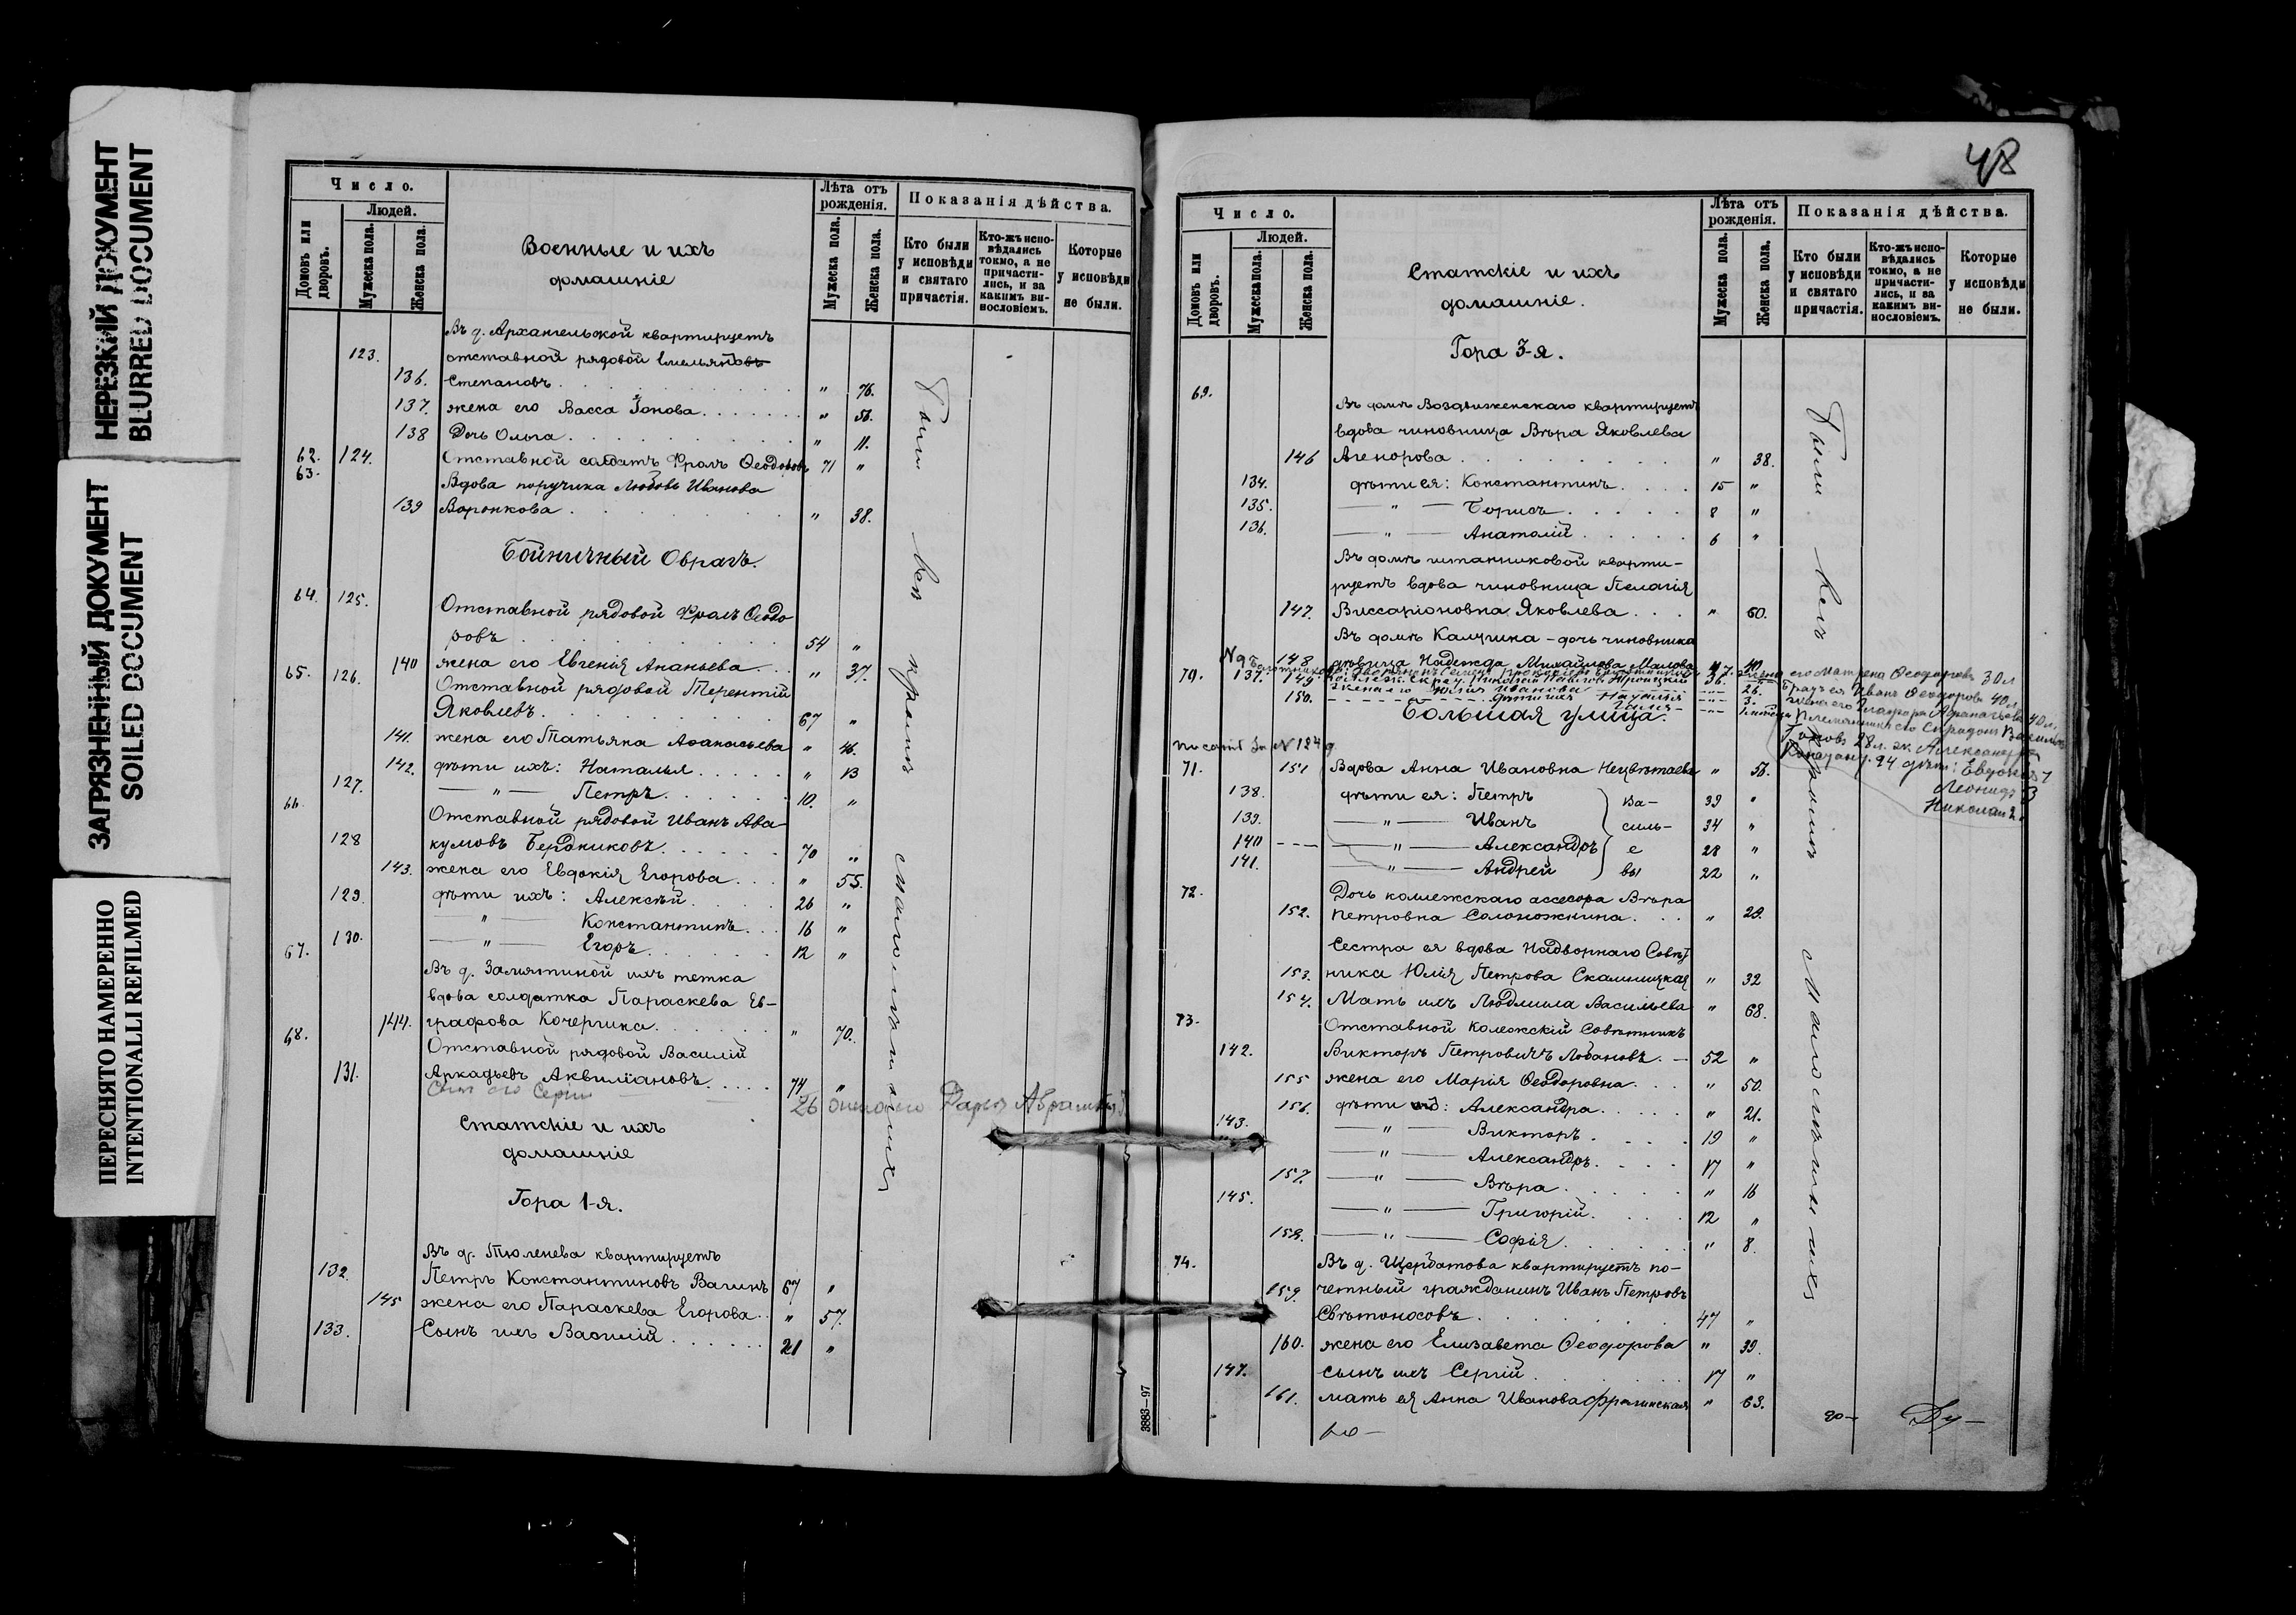 НЕРЕЗКИЙ ДОКУМЕНТ
BLURRED DOCUMENT
ЗАГРЯЗНЕННЫЙ ДОКУМЕНТ
SOILED DOCUMENT
ПЕРЕСНЯТО НАМЕРЕННО
INTENTIONALLI REFILMED
Число.
Людей.
Домовъ или дворовъ.
Мужеска пола.
Женска пола.
Военные и ихъ
домашніе
Лѣта отъ рожденія.
Мужеска пола.
Женска пола.
Показанія дѣйства.
Кто были у исповѣди и святаго причастія.
Кто-жъ исповѣдались токмо, а не причастились, и за какимъ винословіемъ.
Которые у исповѣди не были.
Въ д. Архангельской квартируетъ
123. отставной рядовой Емельянъ
136. Степановъ . . . " 76.
137. жена его Васса Іонова . . . " 56.
138 Дочь Ольга . . . " 11.
62. 124. Отставной солдатъ Фролъ Ѳеодоровъ 71 "
63. Вдова поручика Любовь Иванова
139 Воронкова . . . " 38.
Бойничный Оврагъ.
64. 125. Отставной рядовой Фролъ Ѳеодо
ровъ . . . 54 "
140 жена его Евгенія Ананьева . . . " 37.
65. 126. Отставной рядовой Терентій
Яковлевъ . . . 67 "
141. жена его Татьяна Аѳанасьева " 46.
142. дѣти ихъ: Наталья . . . " 13
127. — " — Петръ . . . 10. "
66. Отставной рядовой Иванъ Ава-
128 кумовъ Бердниковъ . . . 70 "
143. жена его Евдокія Егорова . . . " 55.
129. дѣти ихъ: Алексѣй . . . 26 "
— " — Константинъ . . . 16 "
130. — " — Егоръ . . . 12 "
67. Въ д. Замятиной ихъ тетка
вдова солдатка Параскева Ев-
144. графова Кочергина . . . " 70.
68. Отставной рядовой Василій
131. Аркадьевъ Аквиліановъ . . . 74. "
Сынъ его Сергій 26 жена его Дарья
Статскіе и ихъ
домашніе
Гора 1-я.
Въ д. Тюленева квартируетъ
132. Петръ Константиновъ Вагинъ 67 "
145 жена его Параскева Егорова . . " 57.
133. Сынъ ихъ Василій . . . 21 "
Были всѣ кромѣ малолѣтнихъ
48
Число.
Людей.
Домовъ или дворовъ.
Мужеска пола.
Женска пола.
Статскіе и ихъ
домашніе.
Лѣта отъ рожденія.
Мужеска пола.
Женска пола.
Показанія дѣйства.
Кто были у исповѣди и святаго причастія.
Кто-жъ исповѣдались токмо, а не причастились, и за какимъ винословіемъ.
Которые у исповѣди не были.
Гора 3-я.
69. Въ домѣ Воздвиженскаго квартируетъ
вдова чиновница Вѣра Яковлева
146 Агенорова . . . " 38.
134. дѣти ея: Константинъ . . . 15 "
135. — " — Борисъ . . . 8 "
136. — " — Анатолій . . . 6 "
Въ домѣ Штанниковой кварти-
руетъ вдова чиновница Пелагія
147. Виссаріоновна Яковлева . . . " 60.
Въ домѣ Калугина - дочь чиновника
148 дѣвица Надежда Михайлова Малова " 40
70. 137. 149
Николай 36.
150. жена его Юлія Иванова 26.
жена его Матрена Ѳеодорова 30 л
Братъ ея Иванъ Ѳеодоровъ 40 л.
жена его 40 л.
28 л. ж. Александра
24 дѣти: Евдокія 7
Леонидъ 3
Николай 2.
Большая улица.
N 124
71. 151 Вдова Анна Ивановна Нецвѣтаева " 56.
138. дѣти ея: Петръ 39 "
139. — " — Иванъ 34 "
140 — " — Александръ 28 "
141. — " — Андрей 22 "
Ва-
силь-
е
вы
72. Дочь коллежскаго ассесора Вѣра
152. Петровна Солоножкина . . . " 29.
Сестра ея вдова Надворнаго Совѣт
153. ника Юлія Петрова Скальницкая " 32
154. Мать ихъ Людмила Васильева " 68.
73. Отставной Колежскій Совѣтникъ
142. Викторъ Петровичъ Лобановъ. 52 "
155 жена его Марія Ѳеодоровна . . . " 50.
156. дѣти ихъ: Александра . . . " 21.
143. — " — Викторъ . . . 19 "
— " — Александръ . . . 17 "
157. — " — Вѣра . . . " 16
145. — " — Григорій . . . 12 "
158. — " — Софія . . . " 8.
74. Въ д. Щербатова квартируетъ по-
159. четный гражданинъ Иванъ Петровъ
Свѣтоносовъ . . . 47 "
160. жена его Елизавета Ѳеодорова " 39.
147. сынъ ихъ Сергій . . . 17 "
161. мать ея Анна Иванова " 63.
Были всѣ кромѣ малолѣтнихъ
3883—97